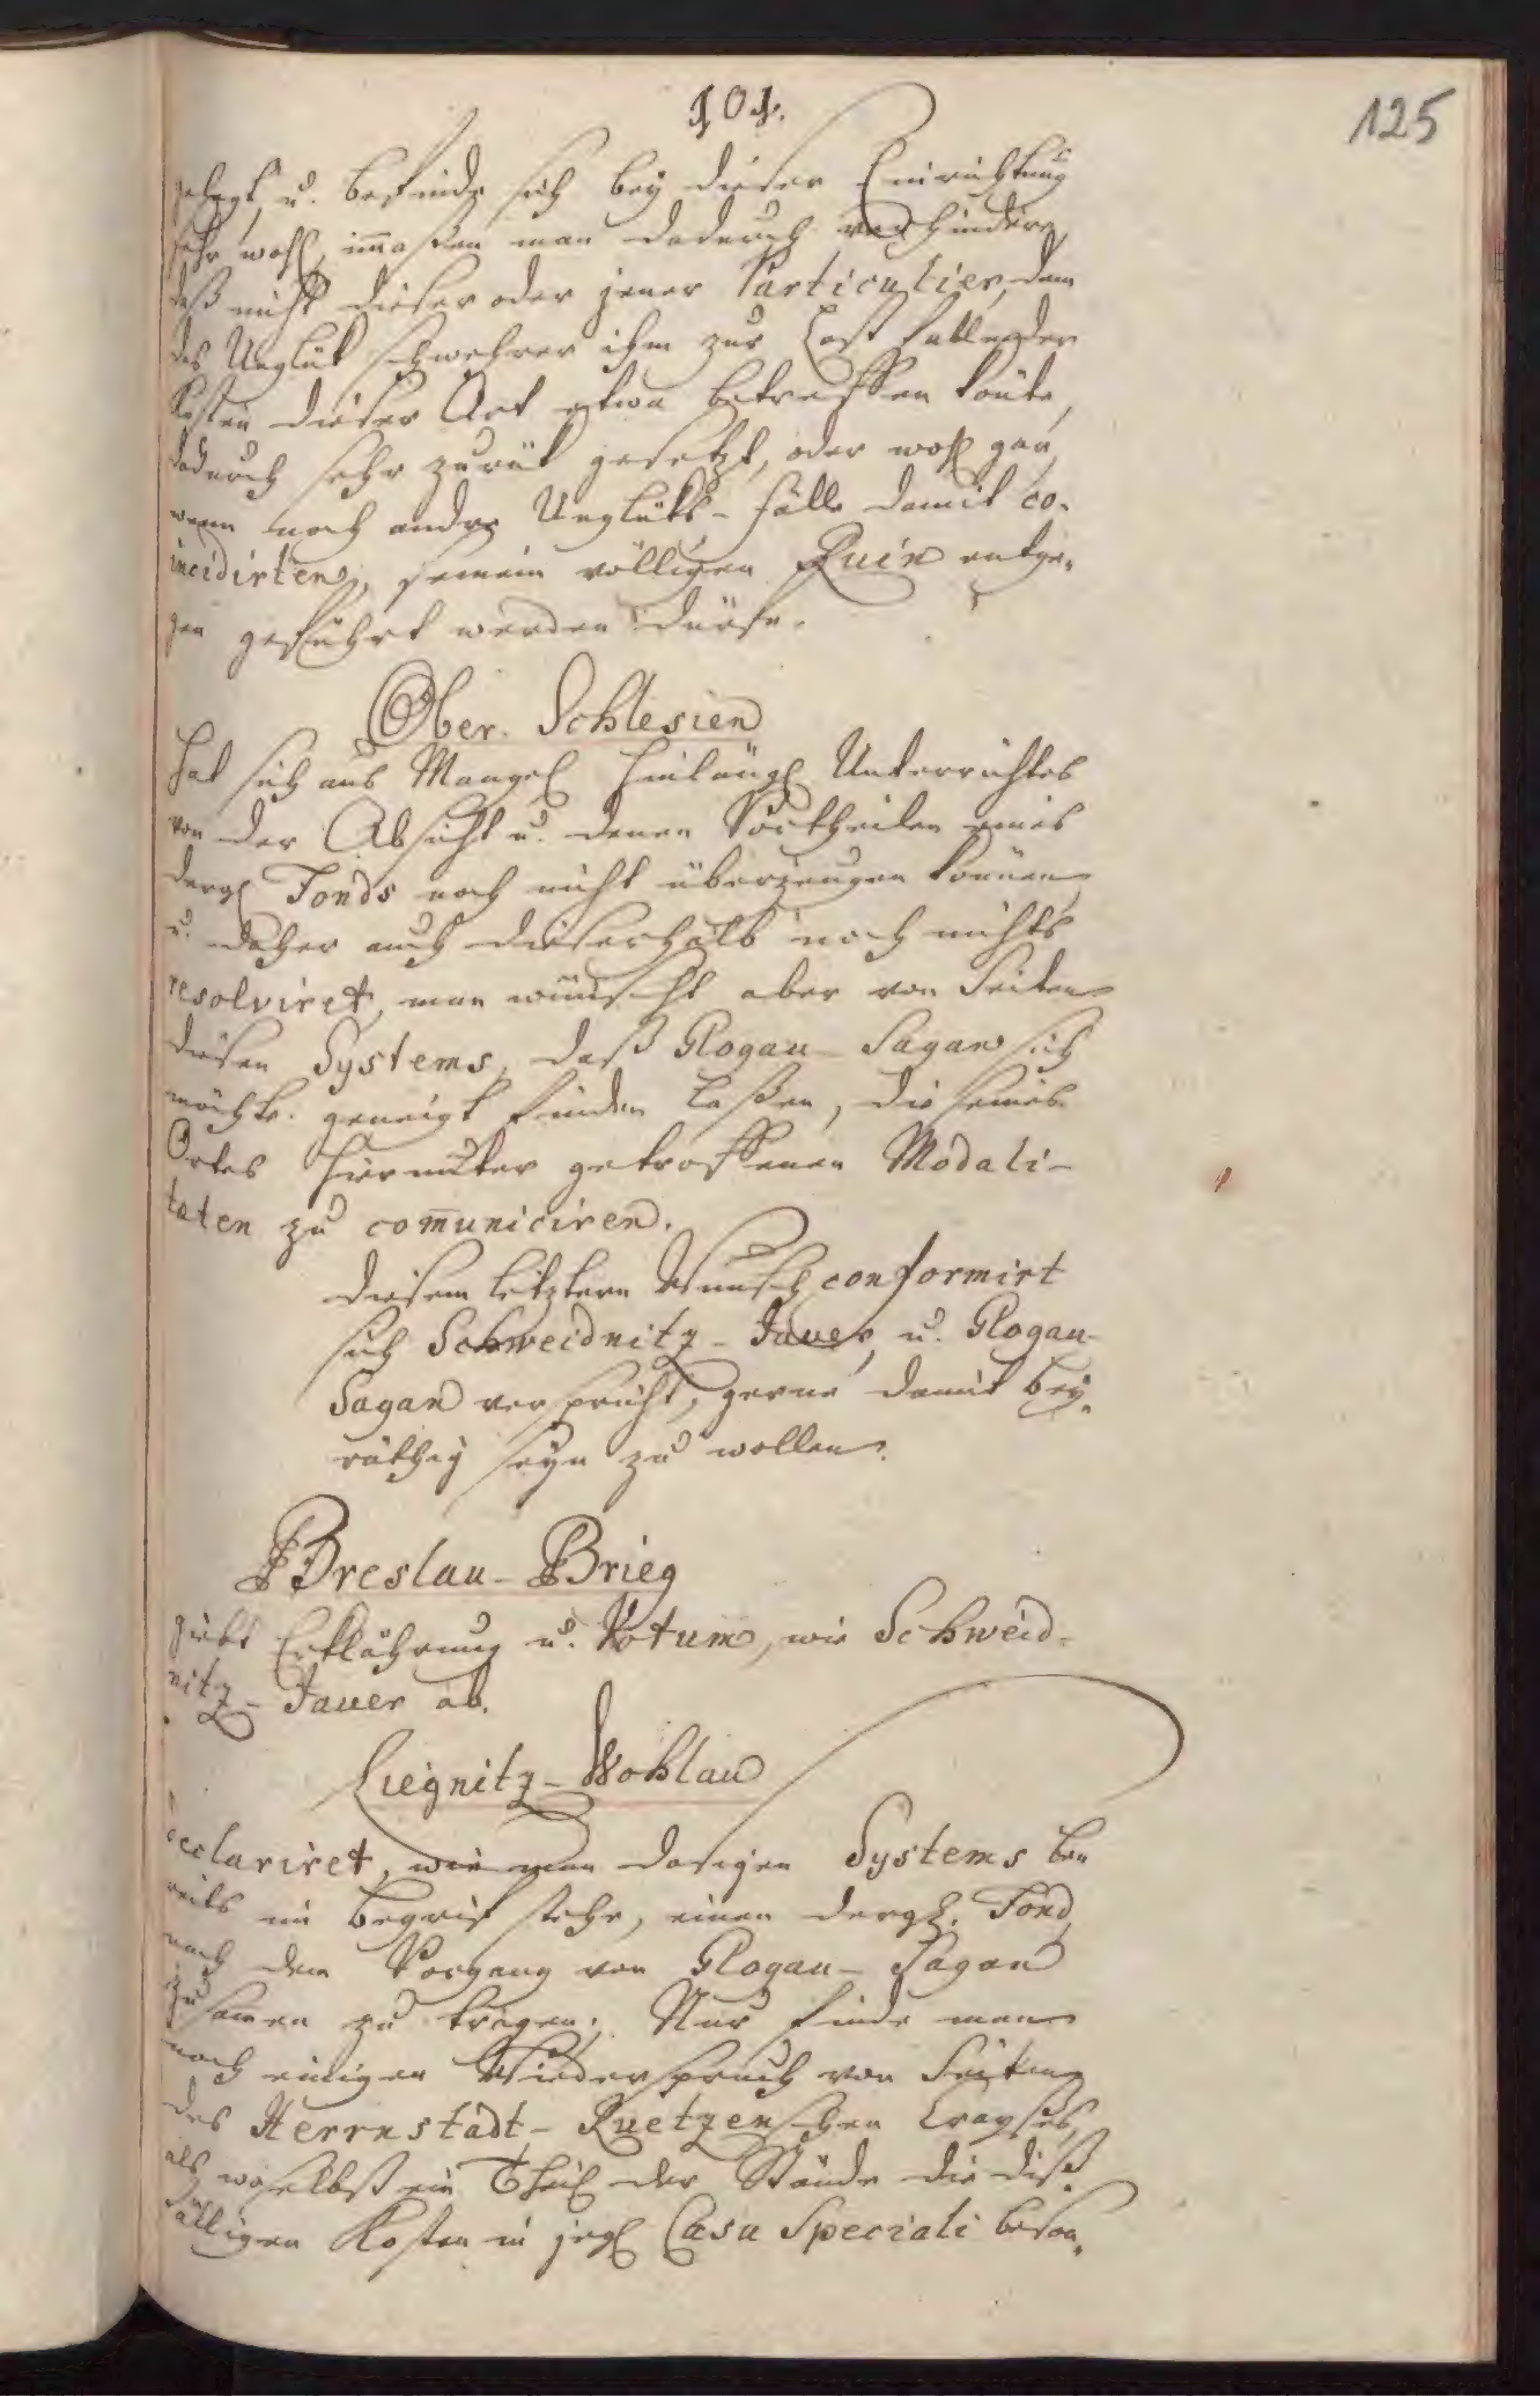 101.
125
gelegt, u. befinde sich bey dieser Einrichtung
sehr wohl, im̄aßen man dadurch verhindere,
daß nicht dieser oder jener Particulier, dem
das Unglük schwehrer ihm zur Last fallender
Kosten dieser Art etwa betreffen könte,
dadurch sehr zurük gesetzt, oder wohl gar,
wenn noch andre Unglüks-Fälle damit co-
incidirten, seinem völligen Ruin entge-
gen geführt werden dürfe.
Ober-Schlesien
hat sich aus Mangel hinlängl Unterrichtes
von der Absicht u. denen Vortheilen eines
dergl Fonds noch nicht überzeugen können,
u. daher auch dieserhalb noch nichts
resolviret, man wünscht aber von Seiten
diesen Systems, daß Glogau-Sagan sich
möchte geneigt finden laßen, die seines
Ortes hierunter getroffenen Modali-
taten zu com̄uniciren.
Diesem letztern Wunsch conformirt
sich Schweidnitz-Jauer, u. Glogau-
Sagan verspricht, gerne damit bey-
räthig seyn zu wollen.
Breslau-Brieg
giebt Erklährung u. Votum, wie Schweid-
nitz-Jauer ab.
Liegnitz-Wohlau
declariret, wie man dasigen Systems be-
reits im Begrif stehe, einen dergl. Fond,
nach dem Vorgang von Glogau-Sagan
zusamen zu tragen; Nur finde man
noch einigen Wiederspruch von Seiten
des Herrnstadt-Ruetzenschen Crayses,
als woselbst ein Theil der Stände die diß-
fälligen Kosten in jegl Casu Speciali beson-